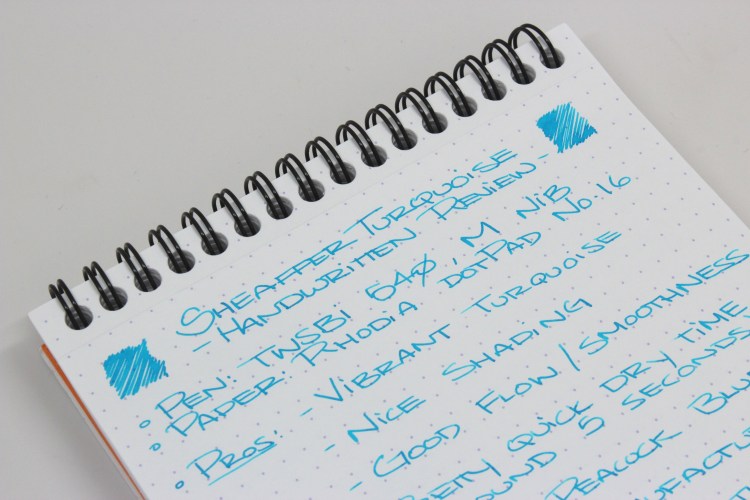 SHEAFFER TURQUOISE
- HANDWRITTEN REVIEW -
• PEN: TWSBI 540, M NIB
• PAPER: RHODIA DOTPAD No. 16
• PROS: - VIBRANT TURQUOISE
- NICE SHADING
- GOOD FLOW/SMOOTHNESS
QUICK DRY TIME
5 SECONDS
PEACOCK